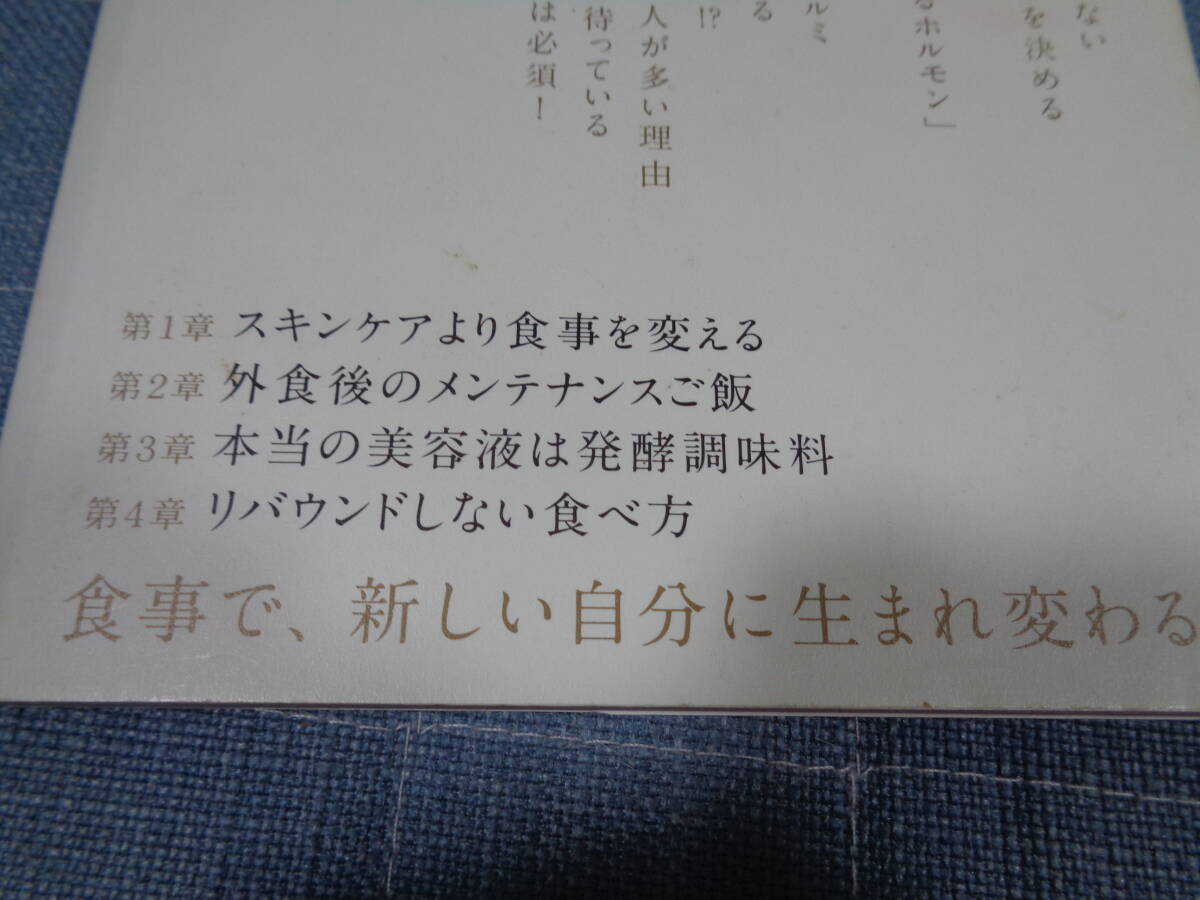 ない
を決める
るホルモン」
ルミ
る
!?
人が多い理由
待っている
は必須！
第1章 スキンケアより食事を変える
第2章 外食後のメンテナンスご飯
第3章 本当の美容液は発酵調味料
第4章 リバウンドしない食べ方
食事で、新しい自分に生まれ変わる